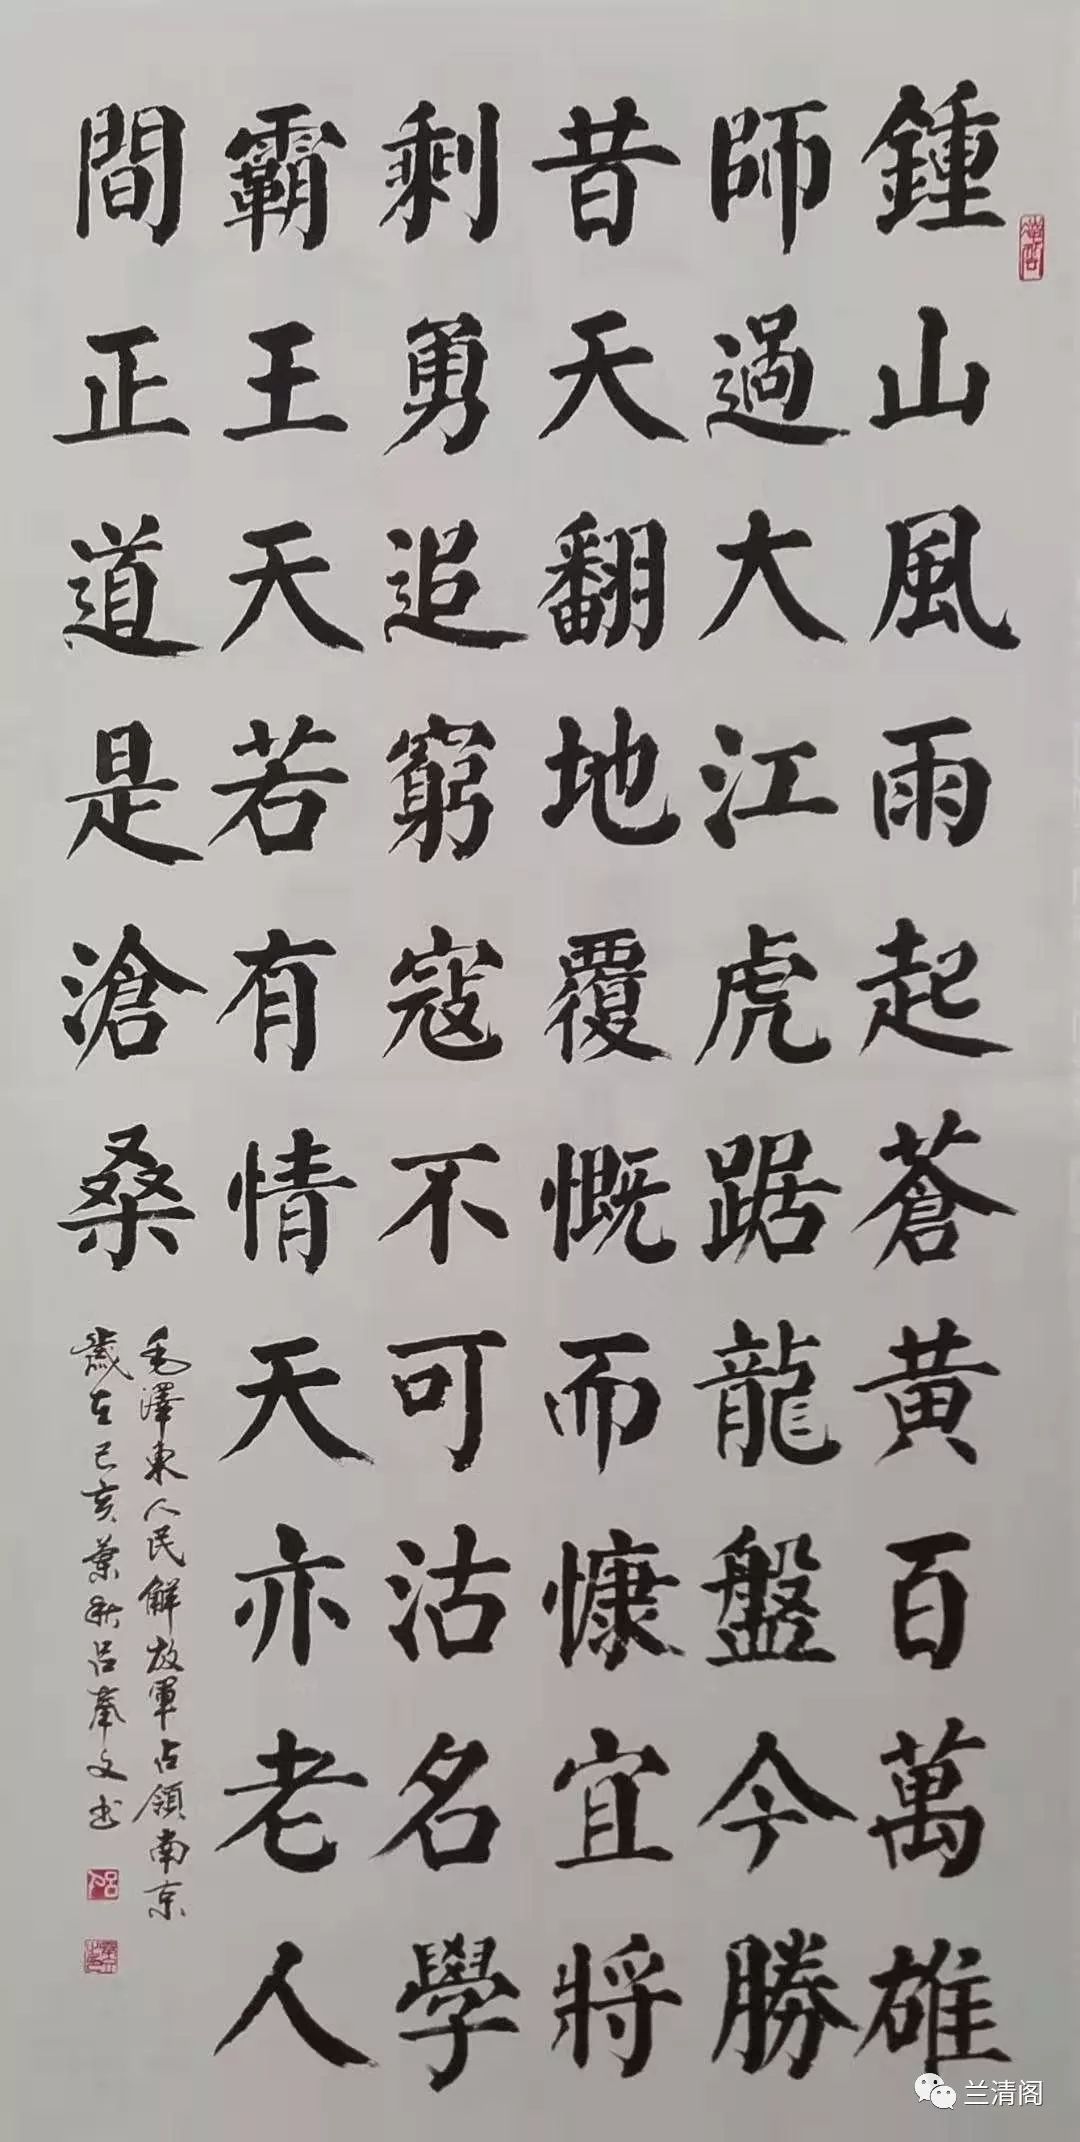 鍾山風雨起蒼黃百萬雄
師過大江虎踞龍盤今勝
昔天翻地覆慨而慷宜將
剩勇追窮寇不可沽名學
霸王天天若有情天亦老人
間正道是滄桑
毛澤東人民解放軍占領南京
歲在己亥葉秋呂奉文书
兰清阁